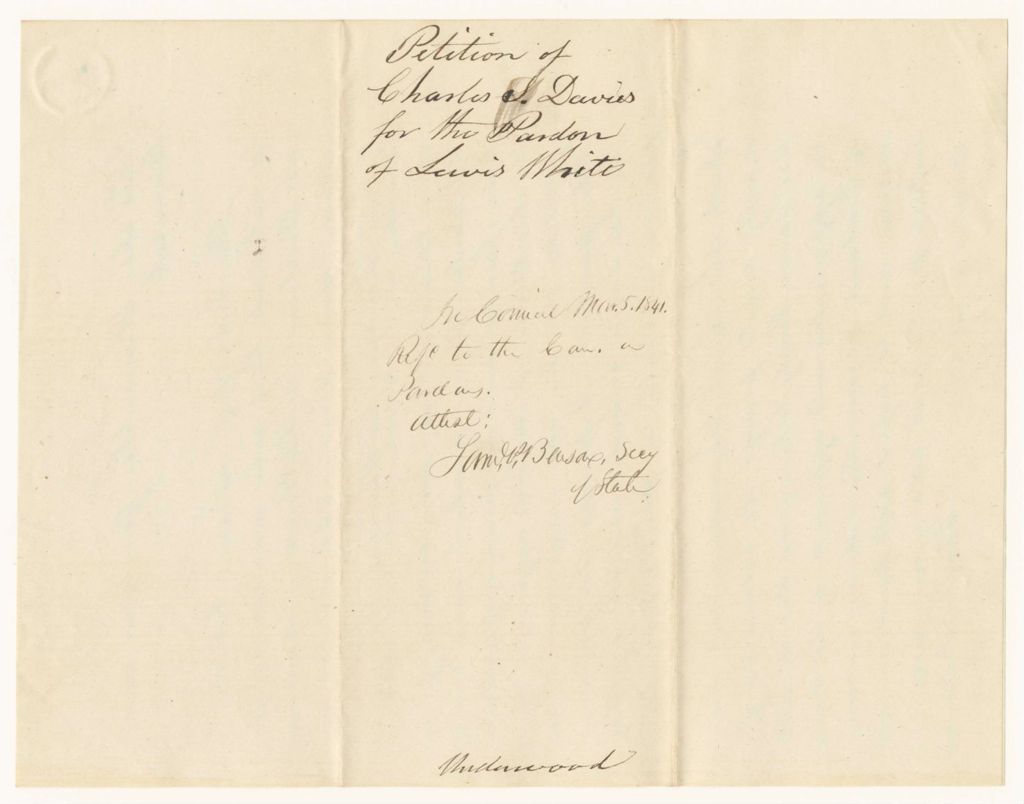 Petition of
Charles S. Davies
for the Pardon
of Lewis White
In Council Mar. 5. 1841.
Refd to the Com. on
Pardons.
Attest:
Saml. P. Benson, Secy
of State.
Underwood